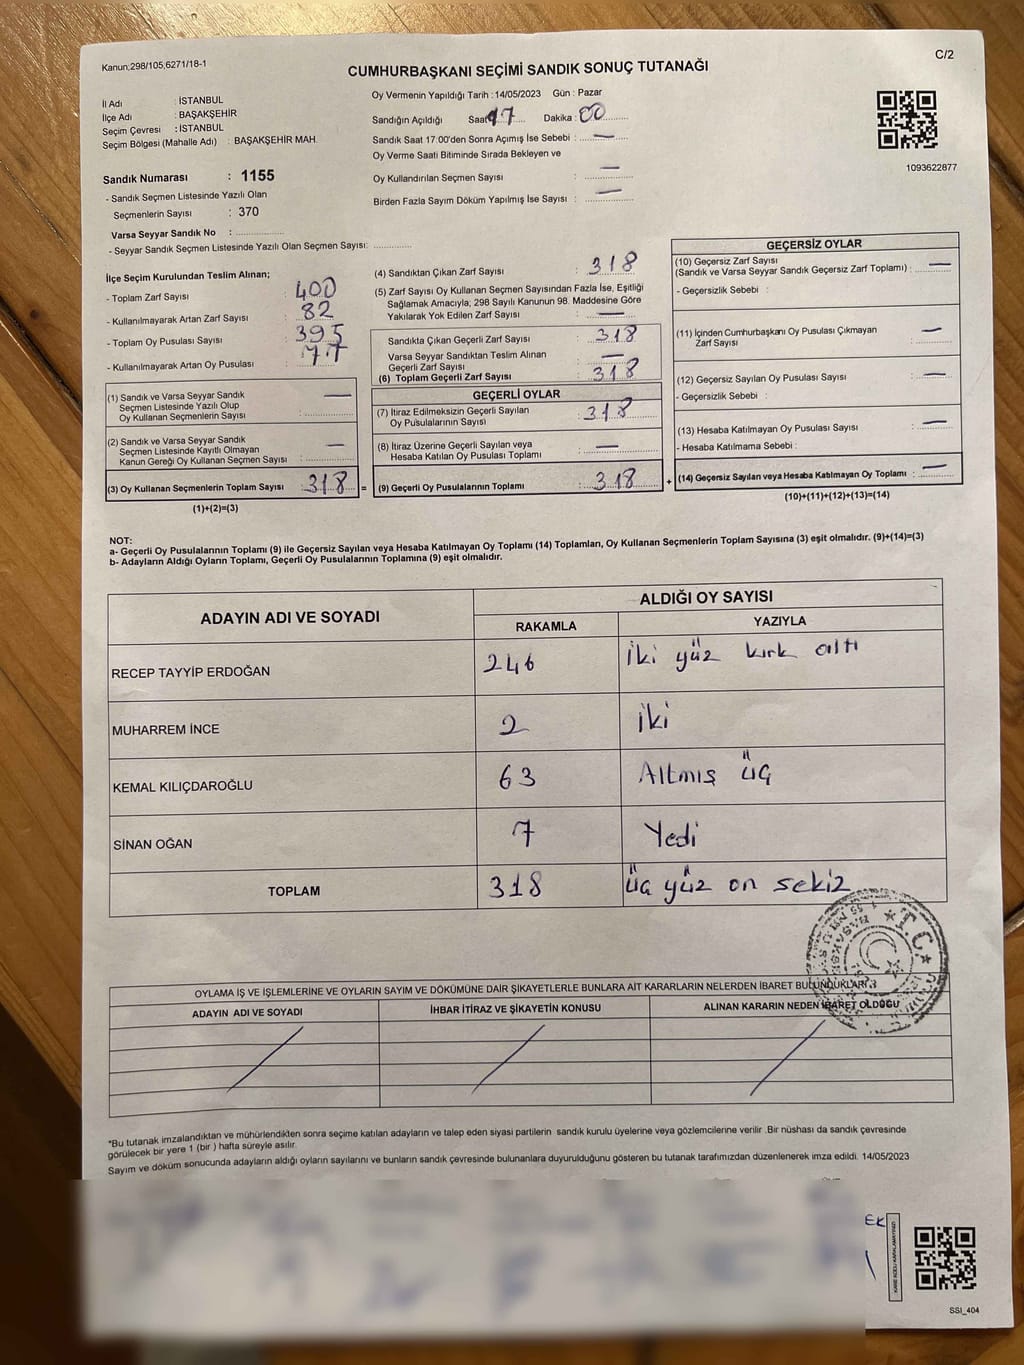 Kanun;298/105,6271/18-1
C/2
CUMHURBAŞKANI SEÇİMİ SANDIK SONUÇ TUTANAĞI
İl Adı : İSTANBUL
İlçe Adı : BAŞAKŞEHİR
Seçim Çevresi : İSTANBUL
Seçim Bölgesi (Mahalle Adı) : BAŞAKŞEHİR MAH.
Sandık Numarası : 1155
- Sandık Seçmen Listesinde Yazılı Olan
Seçmenlerin Sayısı : 370
Varsa Seyyar Sandık No :
- Seyyar Sandık Seçmen Listesinde Yazılı Olan Seçmen Sayısı:
Oy Vermenin Yapıldığı Tarih : 14/05/2023 Gün : Pazar
Sandığın Açıldığı Saat 17 Dakika : 00
Sandık Saat 17:00'den Sonra Açımış İse Sebebi : —
Oy Verme Saati Bitiminde Sırada Bekleyen ve
Oy Kullandırılan Seçmen Sayısı : —
Birden Fazla Sayım Döküm Yapılmış İse Sayısı : —
1093622877
İlçe Seçim Kurulundan Teslim Alınan;
- Toplam Zarf Sayısı : 400
- Kullanılmayarak Artan Zarf Sayısı : 82
- Toplam Oy Pusulası Sayısı : 395
- Kullanılmayarak Artan Oy Pusulası : 77
(1) Sandık ve Varsa Seyyar Sandık
Seçmen Listesinde Yazılı Olup
Oy Kullanan Seçmenlerin Sayısı : —
(2) Sandık ve Varsa Seyyar Sandık
Seçmen Listesinde Kayıtlı Olmayan
Kanun Gereği Oy Kullanan Seçmen Sayısı : —
(3) Oy Kullanan Seçmenlerin Toplam Sayısı : 318 =
(1)+(2)=(3)
(4) Sandıktan Çıkan Zarf Sayısı : 318
(5) Zarf Sayısı Oy Kullanan Seçmen Sayısından Fazla İse, Eşitliği
Sağlamak Amacıyla; 298 Sayılı Kanunun 98. Maddesine Göre
Yakılarak Yok Edilen Zarf Sayısı : —
Sandıkta Çıkan Geçerli Zarf Sayısı : 318
Varsa Seyyar Sandıktan Teslim Alınan
Geçerli Zarf Sayısı : —
(6) Toplam Geçerli Zarf Sayısı : 318
GEÇERLİ OYLAR
(7) İtiraz Edilmeksizin Geçerli Sayılan
Oy Pusulalarının Sayısı : 318
(8) İtiraz Üzerine Geçerli Sayılan veya
Hesaba Katılan Oy Pusulası Toplamı : —
(9) Geçerli Oy Pusulalarının Toplamı : 318 +
GEÇERSİZ OYLAR
(10) Geçersiz Zarf Sayısı
(Sandık ve Varsa Seyyar Sandık Geçersiz Zarf Toplamı) : —
- Geçersizlik Sebebi :
(11) İçinden Cumhurbaşkanı Oy Pusulası Çıkmayan
Zarf Sayısı : —
(12) Geçersiz Sayılan Oy Pusulası Sayısı : —
- Geçersizlik Sebebi :
(13) Hesaba Katılmayan Oy Pusulası Sayısı : —
- Hesaba Katılmama Sebebi :
(14) Geçersiz Sayılan veya Hesaba Katılmayan Oy Toplamı : —
(10)+(11)+(12)+(13)=(14)
NOT:
a- Geçerli Oy Pusulalarının Toplamı (9) ile Geçersiz Sayılan veya Hesaba Katılmayan Oy Toplamı (14) Toplamları, Oy Kullanan Seçmenlerin Toplam Sayısına (3) eşit olmalıdır. (9)+(14)=(3)
b- Adayların Aldığı Oyların Toplamı, Geçerli Oy Pusulalarının Toplamına (9) eşit olmalıdır.
ADAYIN ADI VE SOYADI ALDIĞI OY SAYISI
RAKAMLA YAZIYLA
RECEP TAYYİP ERDOĞAN 246 İki yüz kırk altı
MUHARREM İNCE 2 iki
KEMAL KILIÇDAROĞLU 63 Altmış üç
SİNAN OĞAN 7 Yedi
TOPLAM 318 üç yüz on sekiz
T.C.
OYLAMA İŞ VE İŞLEMLERİNE VE OYLARIN SAYIM VE DÖKÜMÜNE DAİR ŞİKAYETLERLE BUNLARA AİT KARARLARIN NELERDEN İBARET BULUNDUKLARI
ADAYIN ADI VE SOYADI İHBAR İTİRAZ VE ŞİKAYETİN KONUSU ALINAN KARARIN NEDEN İBARET OLDUĞU
*Bu tutanak imzalandıktan ve mühürlendikten sonra seçime katılan adayların ve talep eden siyasi partilerin sandık kurulu üyelerine veya gözlemcilerine verilir .Bir nüshası da sandık çevresinde
görülecek bir yere 1 (bir ) hafta süreyle asılır.
Sayım ve döküm sonucunda adayların aldığı oyların sayılarını ve bunların sandık çevresinde bulunanlara duyurulduğunu gösteren bu tutanak tarafımızdan düzenlenerek imza edildi. 14/05/2023
EK
SSI_404